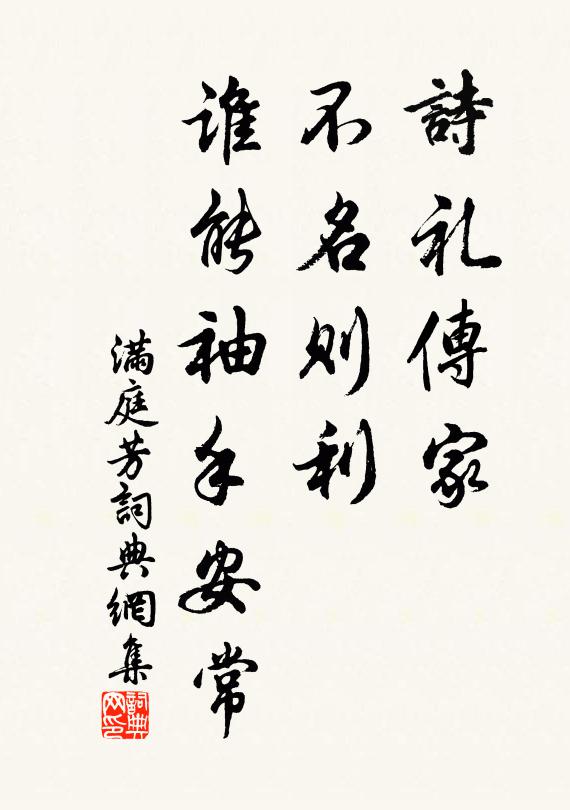 詩礼傳家
不名則利
誰能袖手安常
滿庭芳詞典網集
詞典
网印